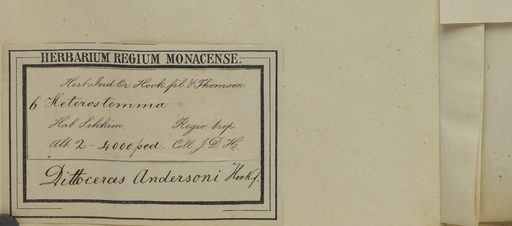 HERBARIUM REGIUM MONACENSE.
Herb. Ind. Or. Hook. fil. & Thomson
6 Heterostemma
Hab. Sikkim Regio. trop
Alt. 2 - 4000 ped. Coll. J. D. H.
Dittoceras Andersoni Hook f.